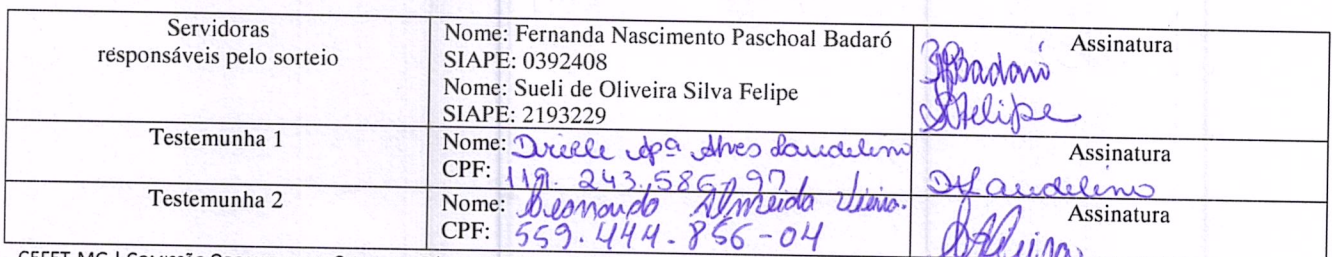 Servidoras
responsáveis pelo sorteio
Nome: Fernanda Nascimento Paschoal Badaró
SIAPE: 0392408
Nome: Sueli de Oliveira Silva Felipe
SIAPE: 2193229
Assinatura
Badaró
SFelipe
Testemunha 1
Nome: Driele Apª Alves Laudelino
CPF: 119.243.586-97
Assinatura
DALaudelino
Testemunha 2
Nome: Leonardo Almeida Vieira.
CPF: 559.444.856-04
Assinatura
CEFET-MG |